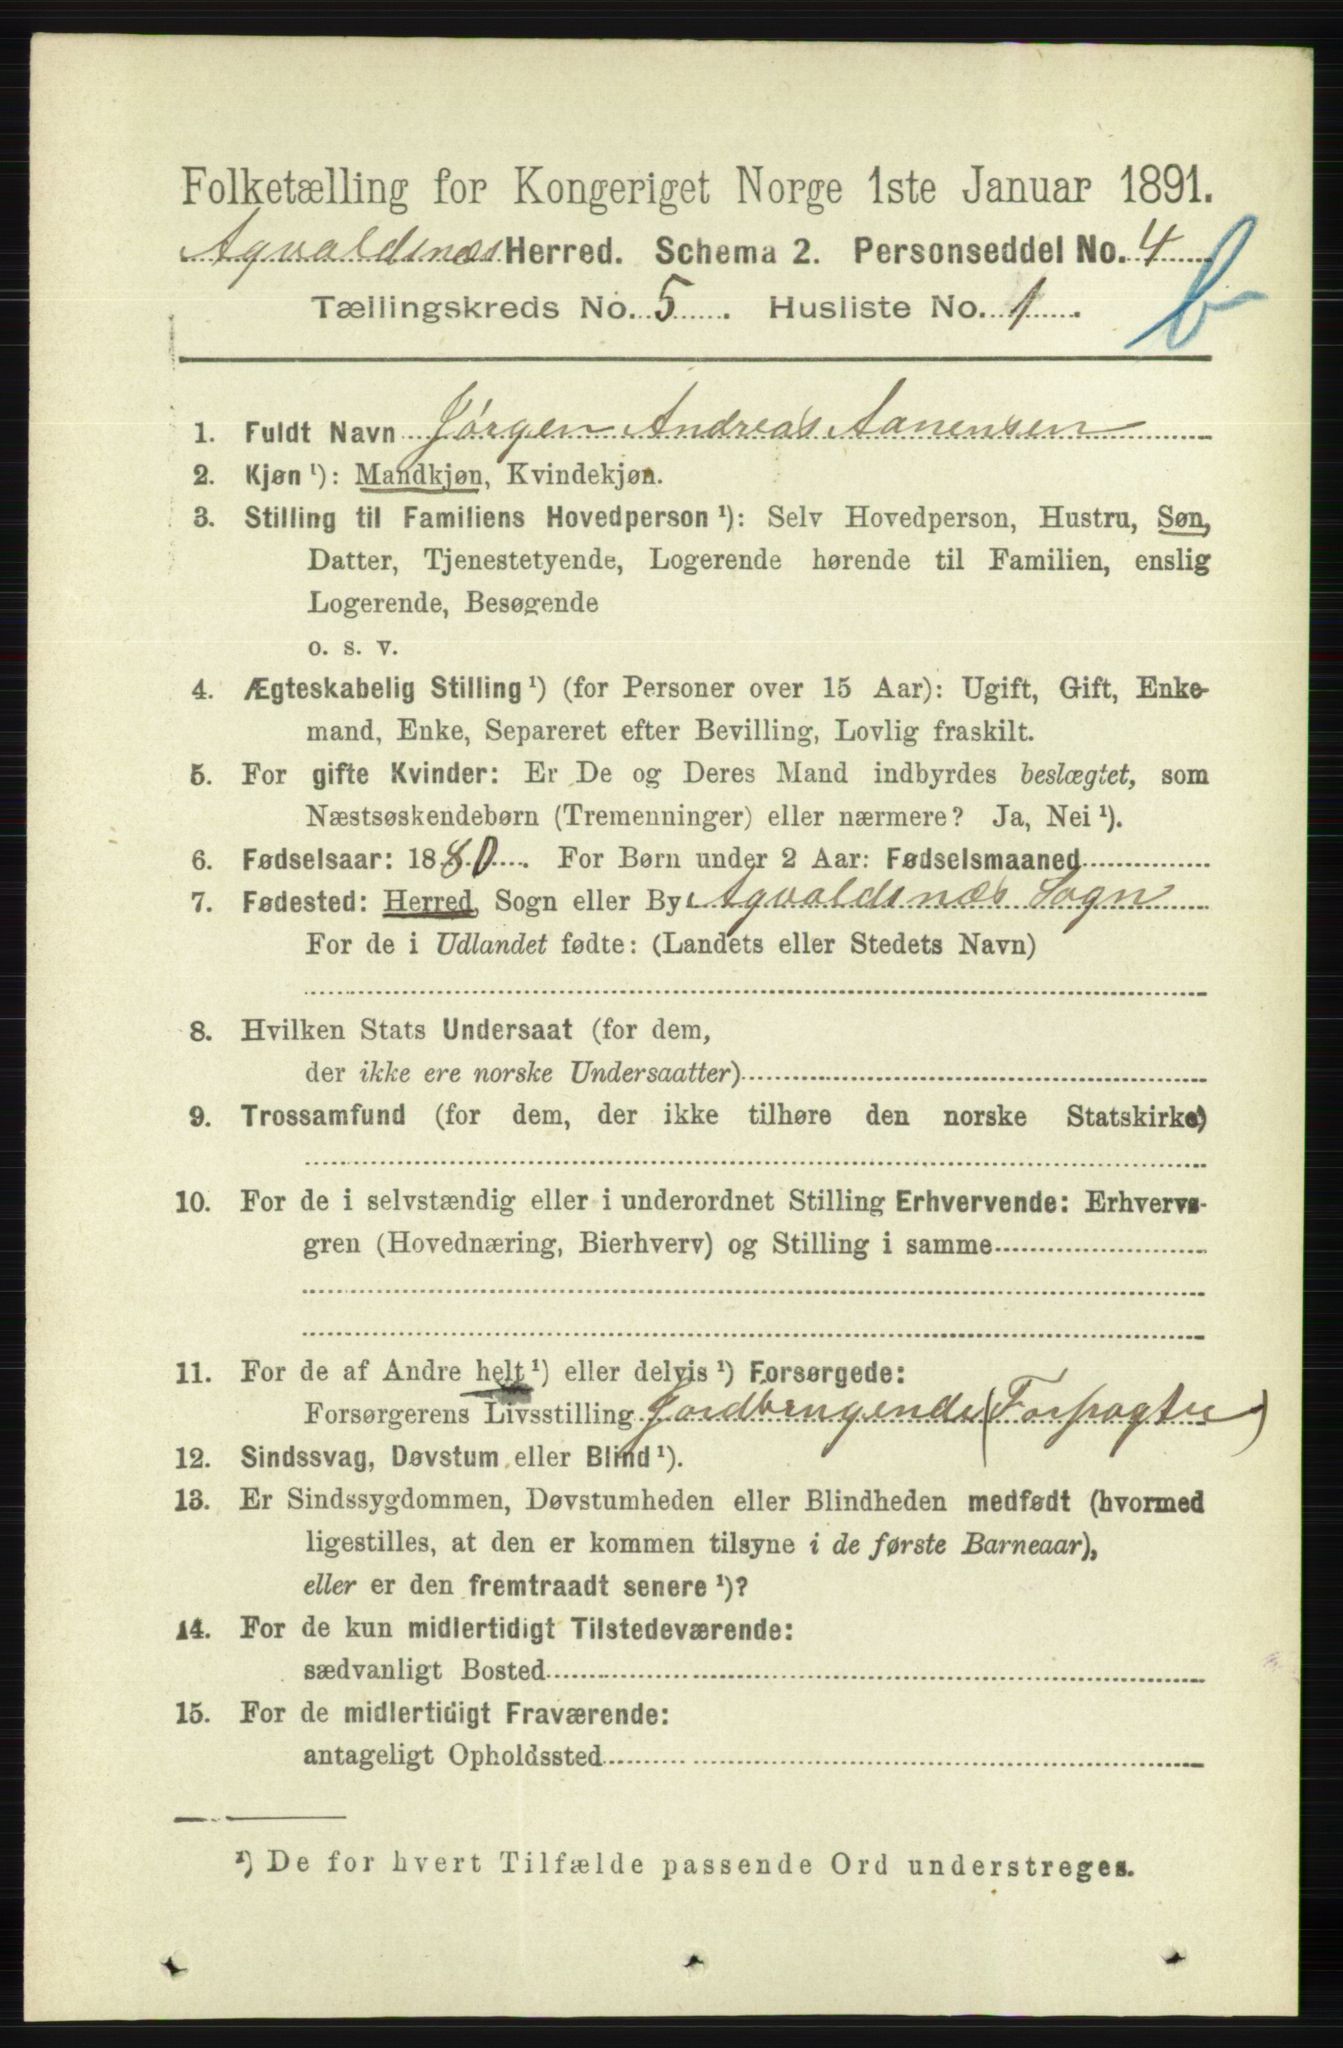 Folketælling for Kongeriget Norge 1ste Januar 1891.
Agvaldsnæs Herred. Schema 2. Personseddel No. 4
b
Tællingskreds No. 5. Husliste No. 1.
1. Fuldt Navn Jørgen Andreas Aanensen
2. Kjøn ¹): Mandkjøn, Kvindekjøn.
3. Stilling til Familiens Hovedperson ¹): Selv Hovedperson, Hustru, Søn,
Datter, Tjenestetyende, Logerende hørende til Familien, enslig
Logerende, Besøgende
o. s. v.
4. Ægteskabelig Stilling ¹) (for Personer over 15 Aar): Ugift, Gift, Enke-
mand, Enke, Separeret efter Bevilling, Lovlig fraskilt.
5. For gifte Kvinder: Er De og Deres Mand indbyrdes beslægtet, som
Næstsøskendebørn (Tremenninger) eller nærmere? Ja, Nei ¹).
6. Fødselsaar: 1880. For Børn under 2 Aar: Fødselsmaaned
7. Fødested: Herred, Sogn eller By Agvaldsnæs Sogn
For de i Udlandet fødte: (Landets eller Stedets Navn)
8. Hvilken Stats Undersaat (for dem,
der ikke ere norske Undersaatter)
9. Trossamfund (for dem, der ikke tilhøre den norske Statskirke)
10. For de i selvstændig eller i underordnet Stilling Erhvervende: Erhvervs-
gren (Hovednæring, Bierhverv) og Stilling i samme
11. For de af Andre helt ¹) eller delvis ¹) Forsørgede:
Forsørgerens Livsstilling Jordbrugende (Forpagter)
12. Sindssvag, Døvstum eller Blind ¹).
13. Er Sindssygdommen, Døvstumheden eller Blindheden medfødt (hvormed
ligestilles, at den er kommen tilsyne i de første Barneaar),
eller er den fremtraadt senere ¹)?
14. For de kun midlertidigt Tilstedeværende:
sædvanligt Bosted
15. For de midlertidigt Fraværende:
antageligt Opholdssted
¹) De for hvert Tilfælde passende Ord understreges.